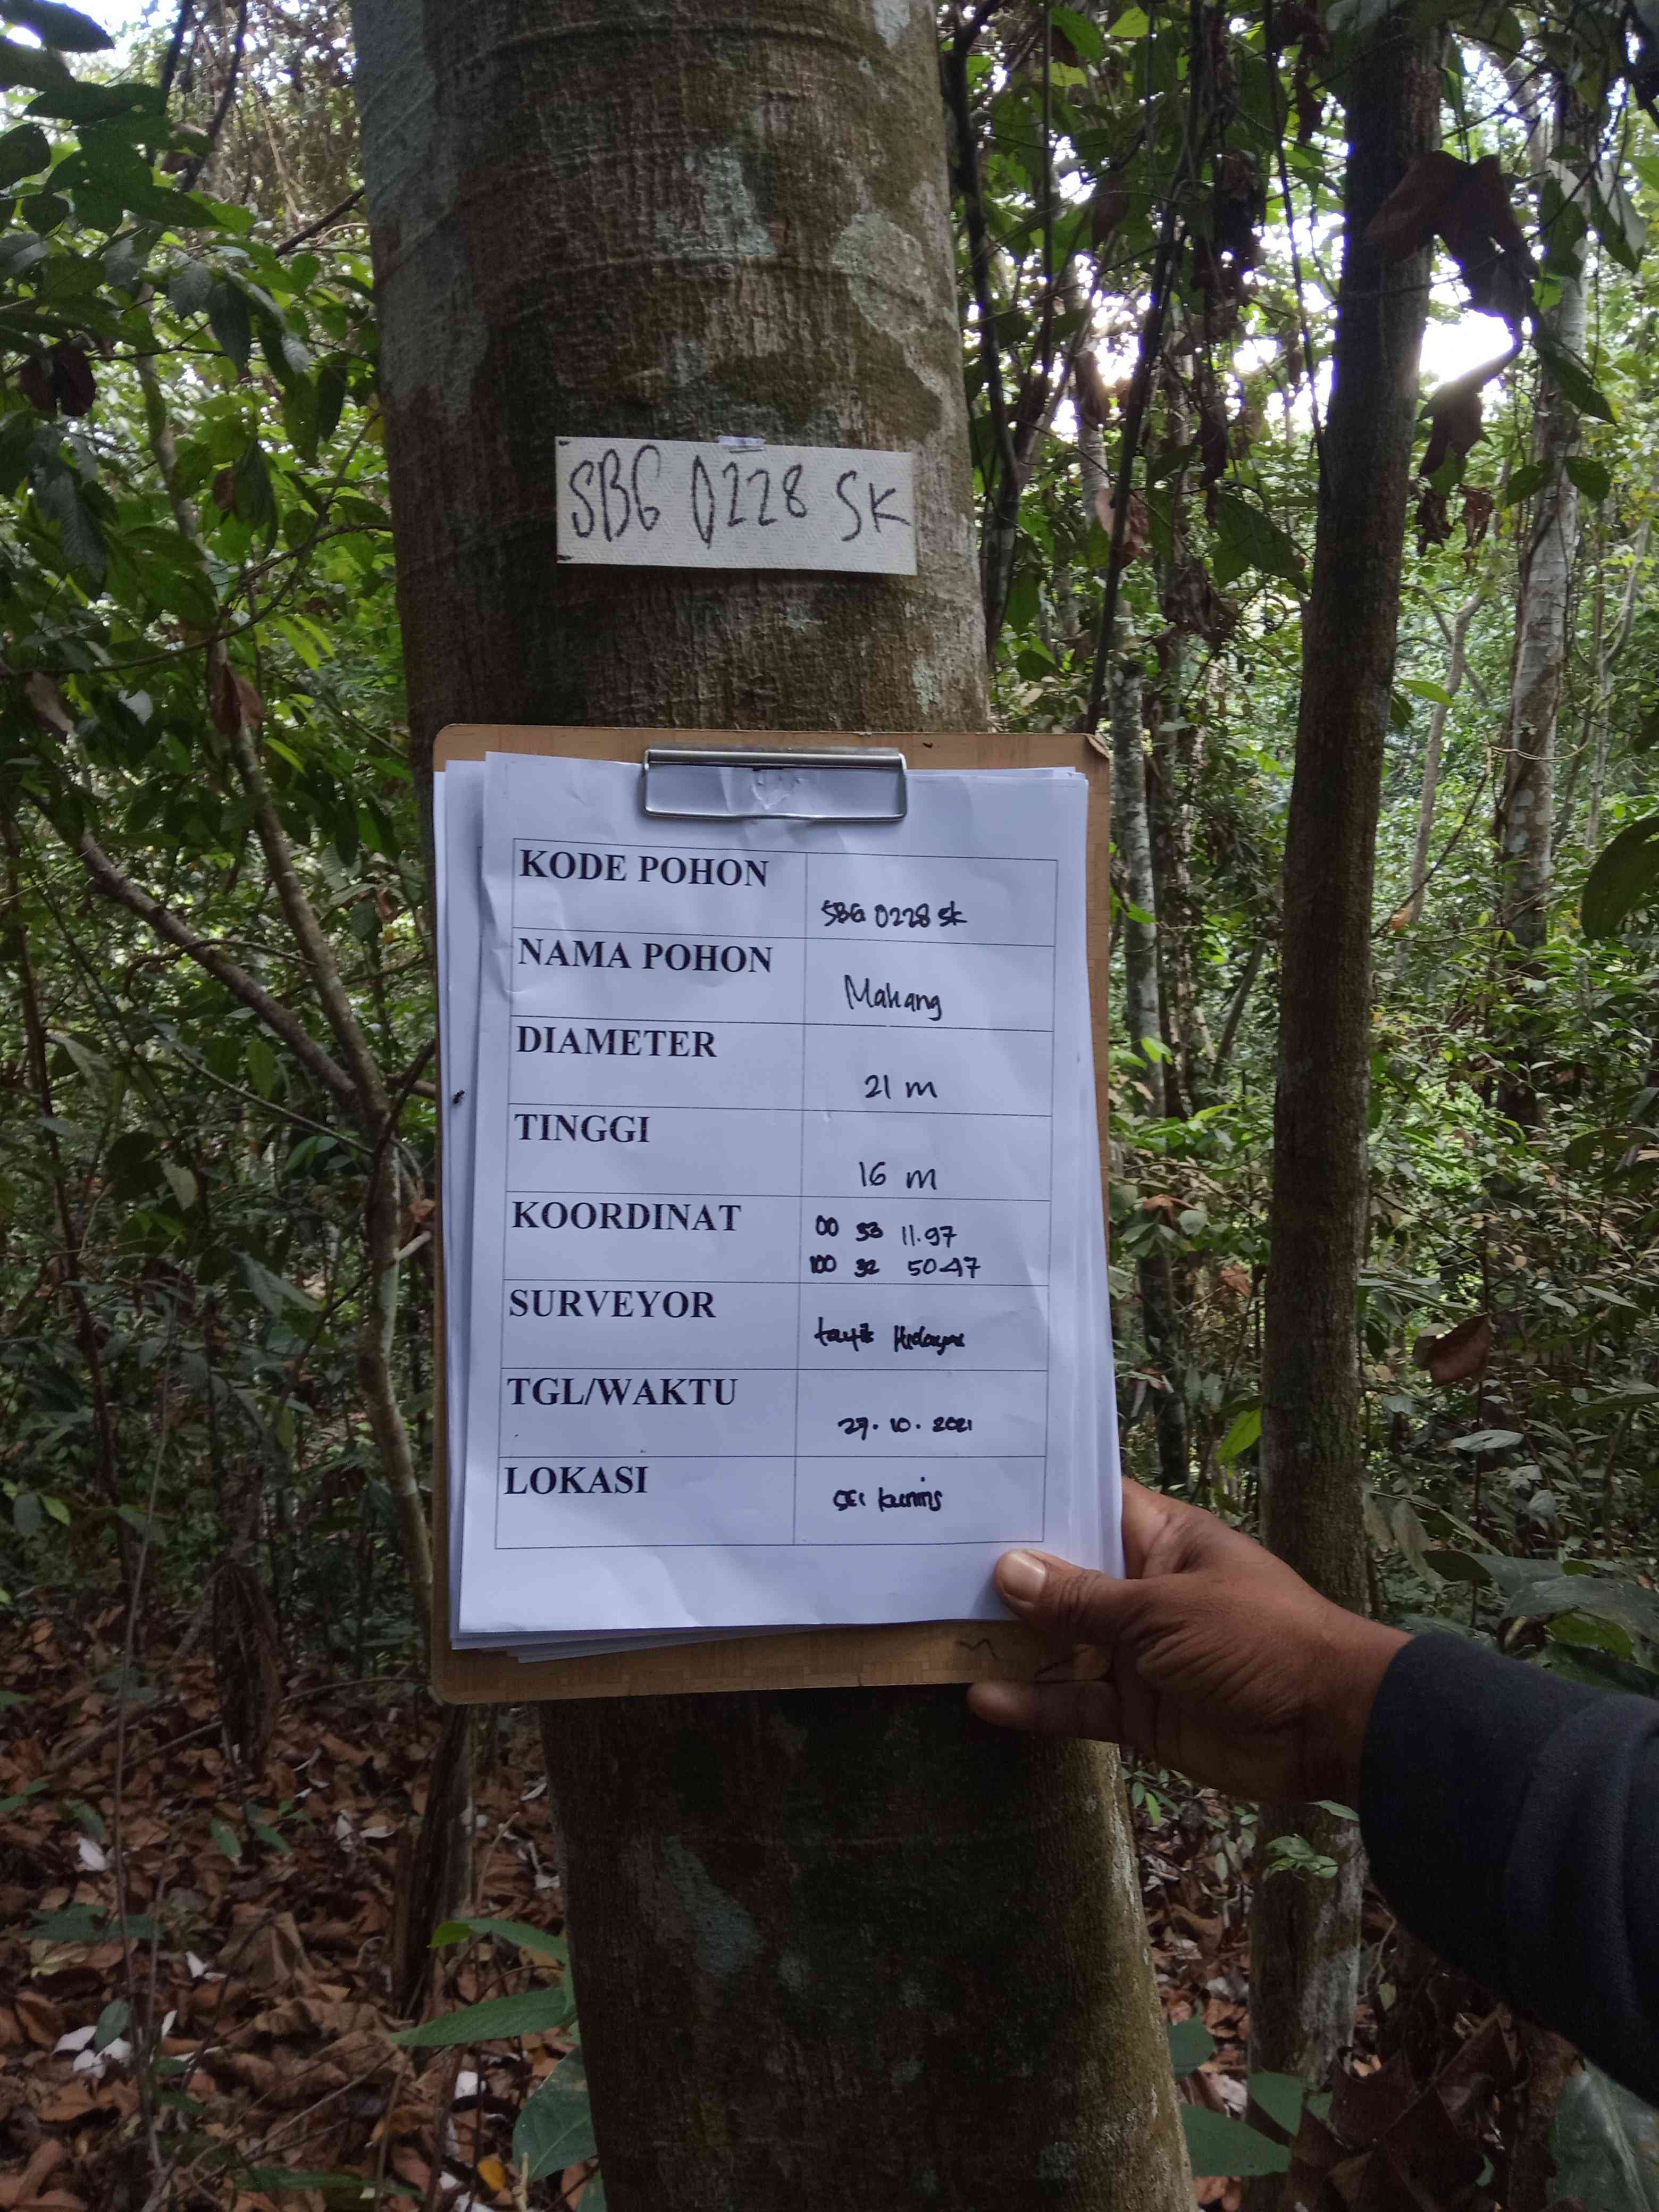 SBG 0228 SK
KODE POHON
SBG 0228 SK
NAMA POHON
Mahang
DIAMETER
21 m
TINGGI
16 m
KOORDINAT
00 53 11.97
100 32 50.47
SURVEYOR
taufik Hidayat
TGL/WAKTU
27.10.2021
LOKASI
SEI kuning